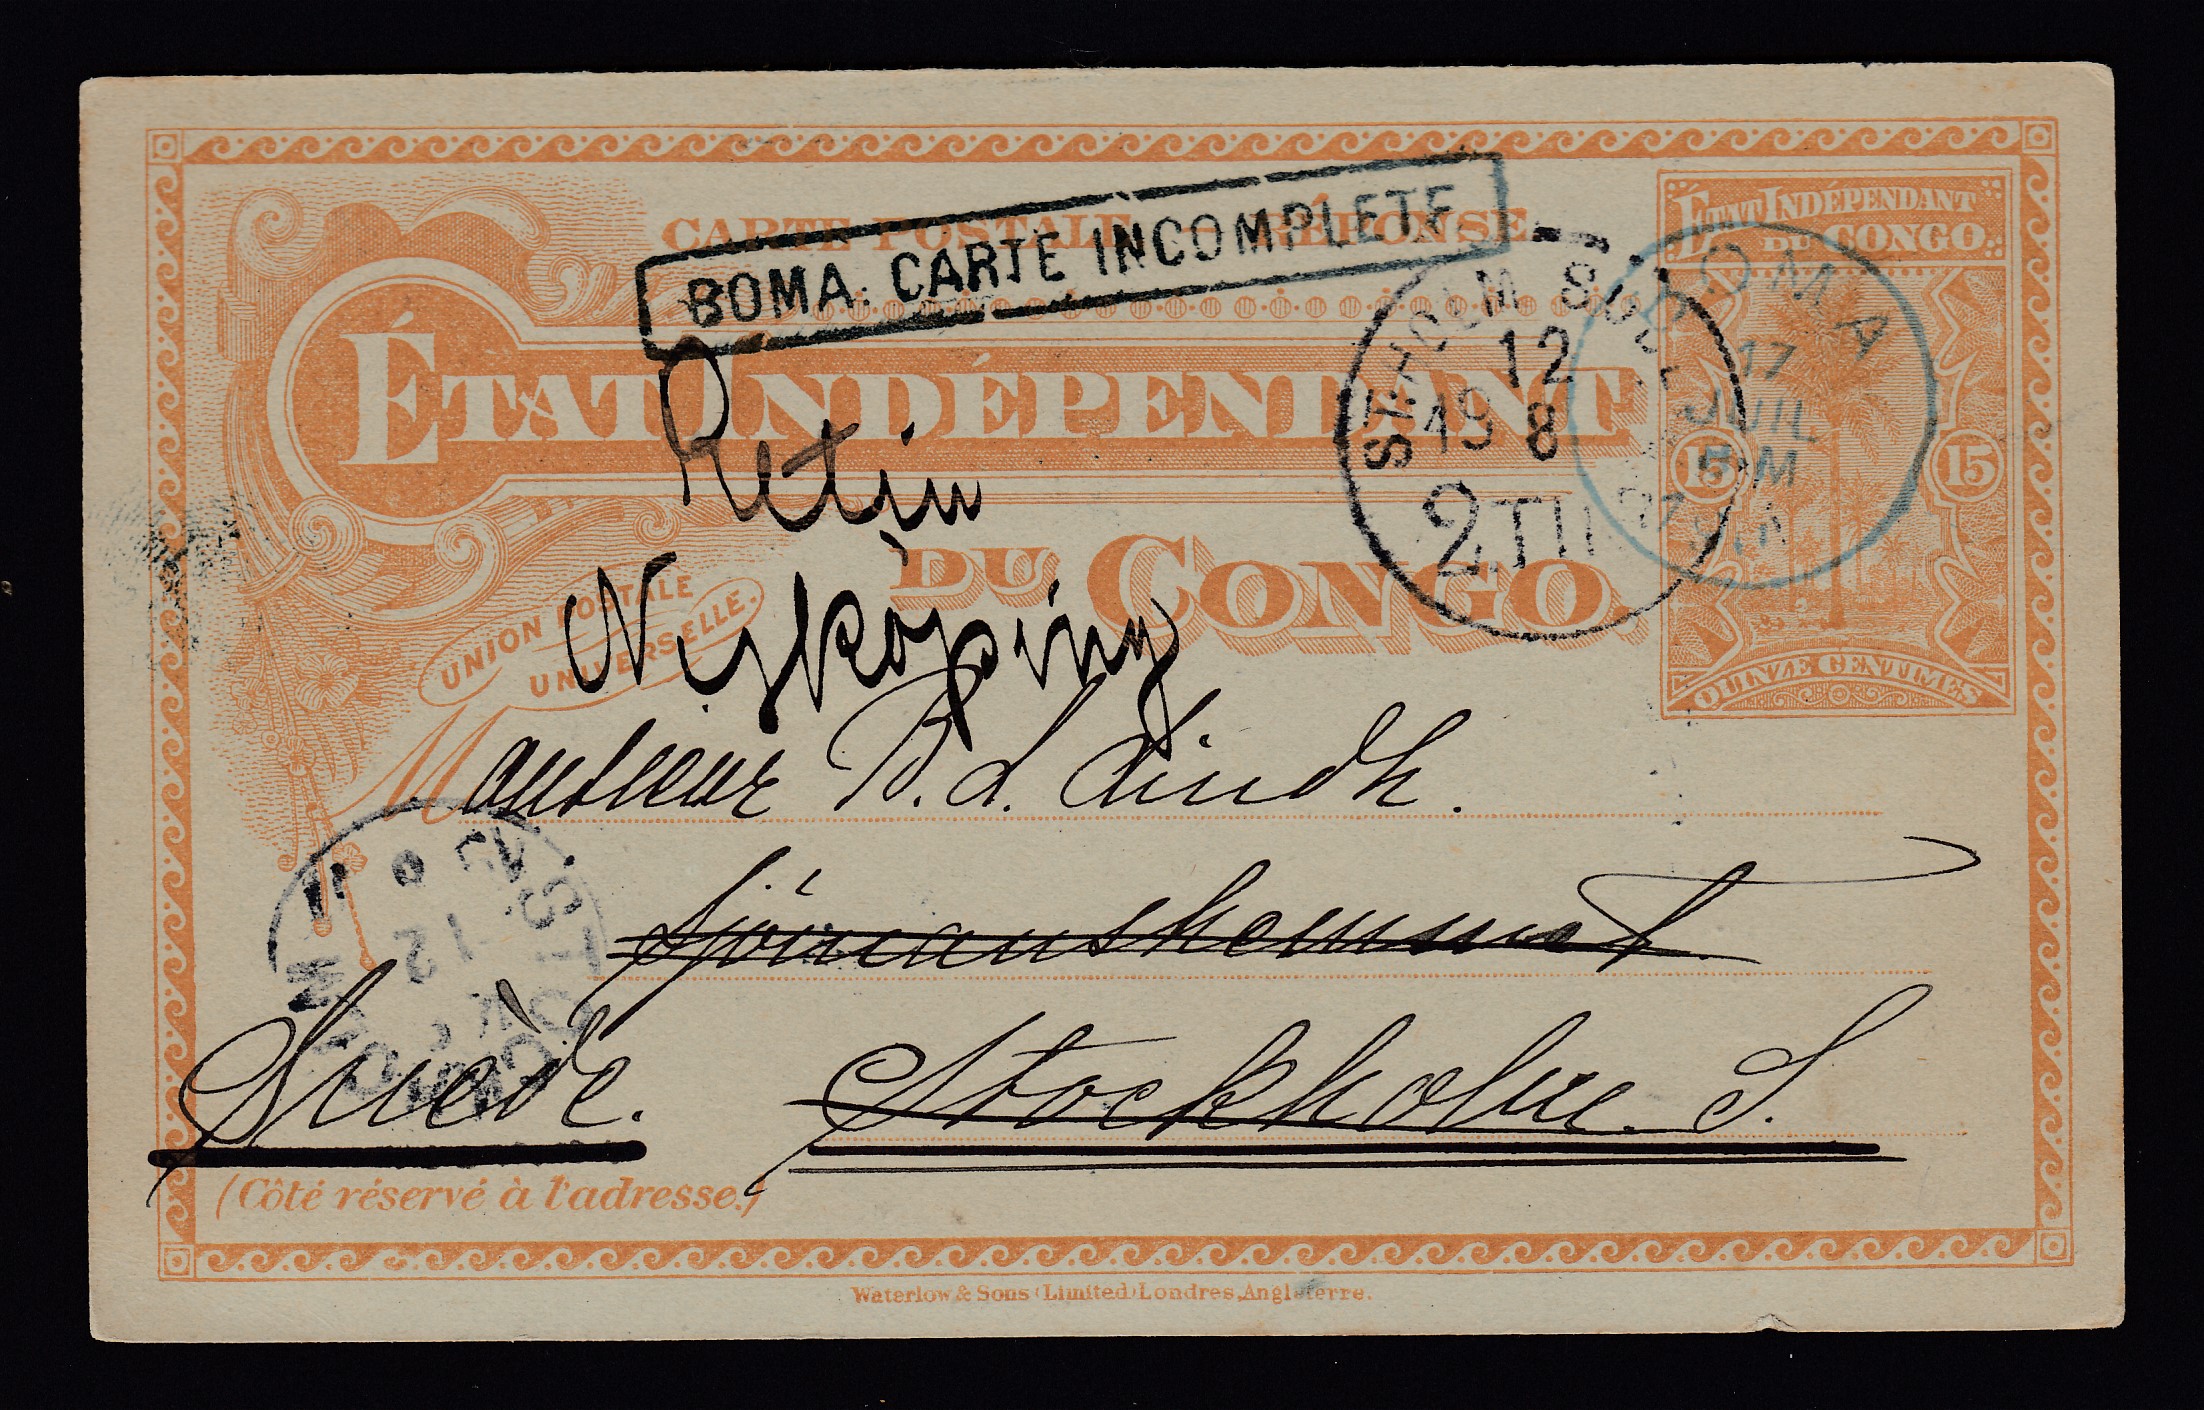 CARTE POSTALE RÉPONSE
BOMA. CARTE INCOMPLETE
ÉTAT INDÉPENDANT
DU CONGO.
UNION POSTALE
UNIVERSELLE.
ÉTAT INDÉPENDANT
DU CONGO
15 15
QUINZE CENTIMES
ST.HOLM SÖD
12
19 8
2 TUR
BOMA
17
JUIL
5-M
Nyköping
Monsieur B. L. Lindh.
Stockholm. S.
Suède.
(Côté réservé à l'adresse.)
Waterlow & Sons (Limited) Londres, Angleterre.